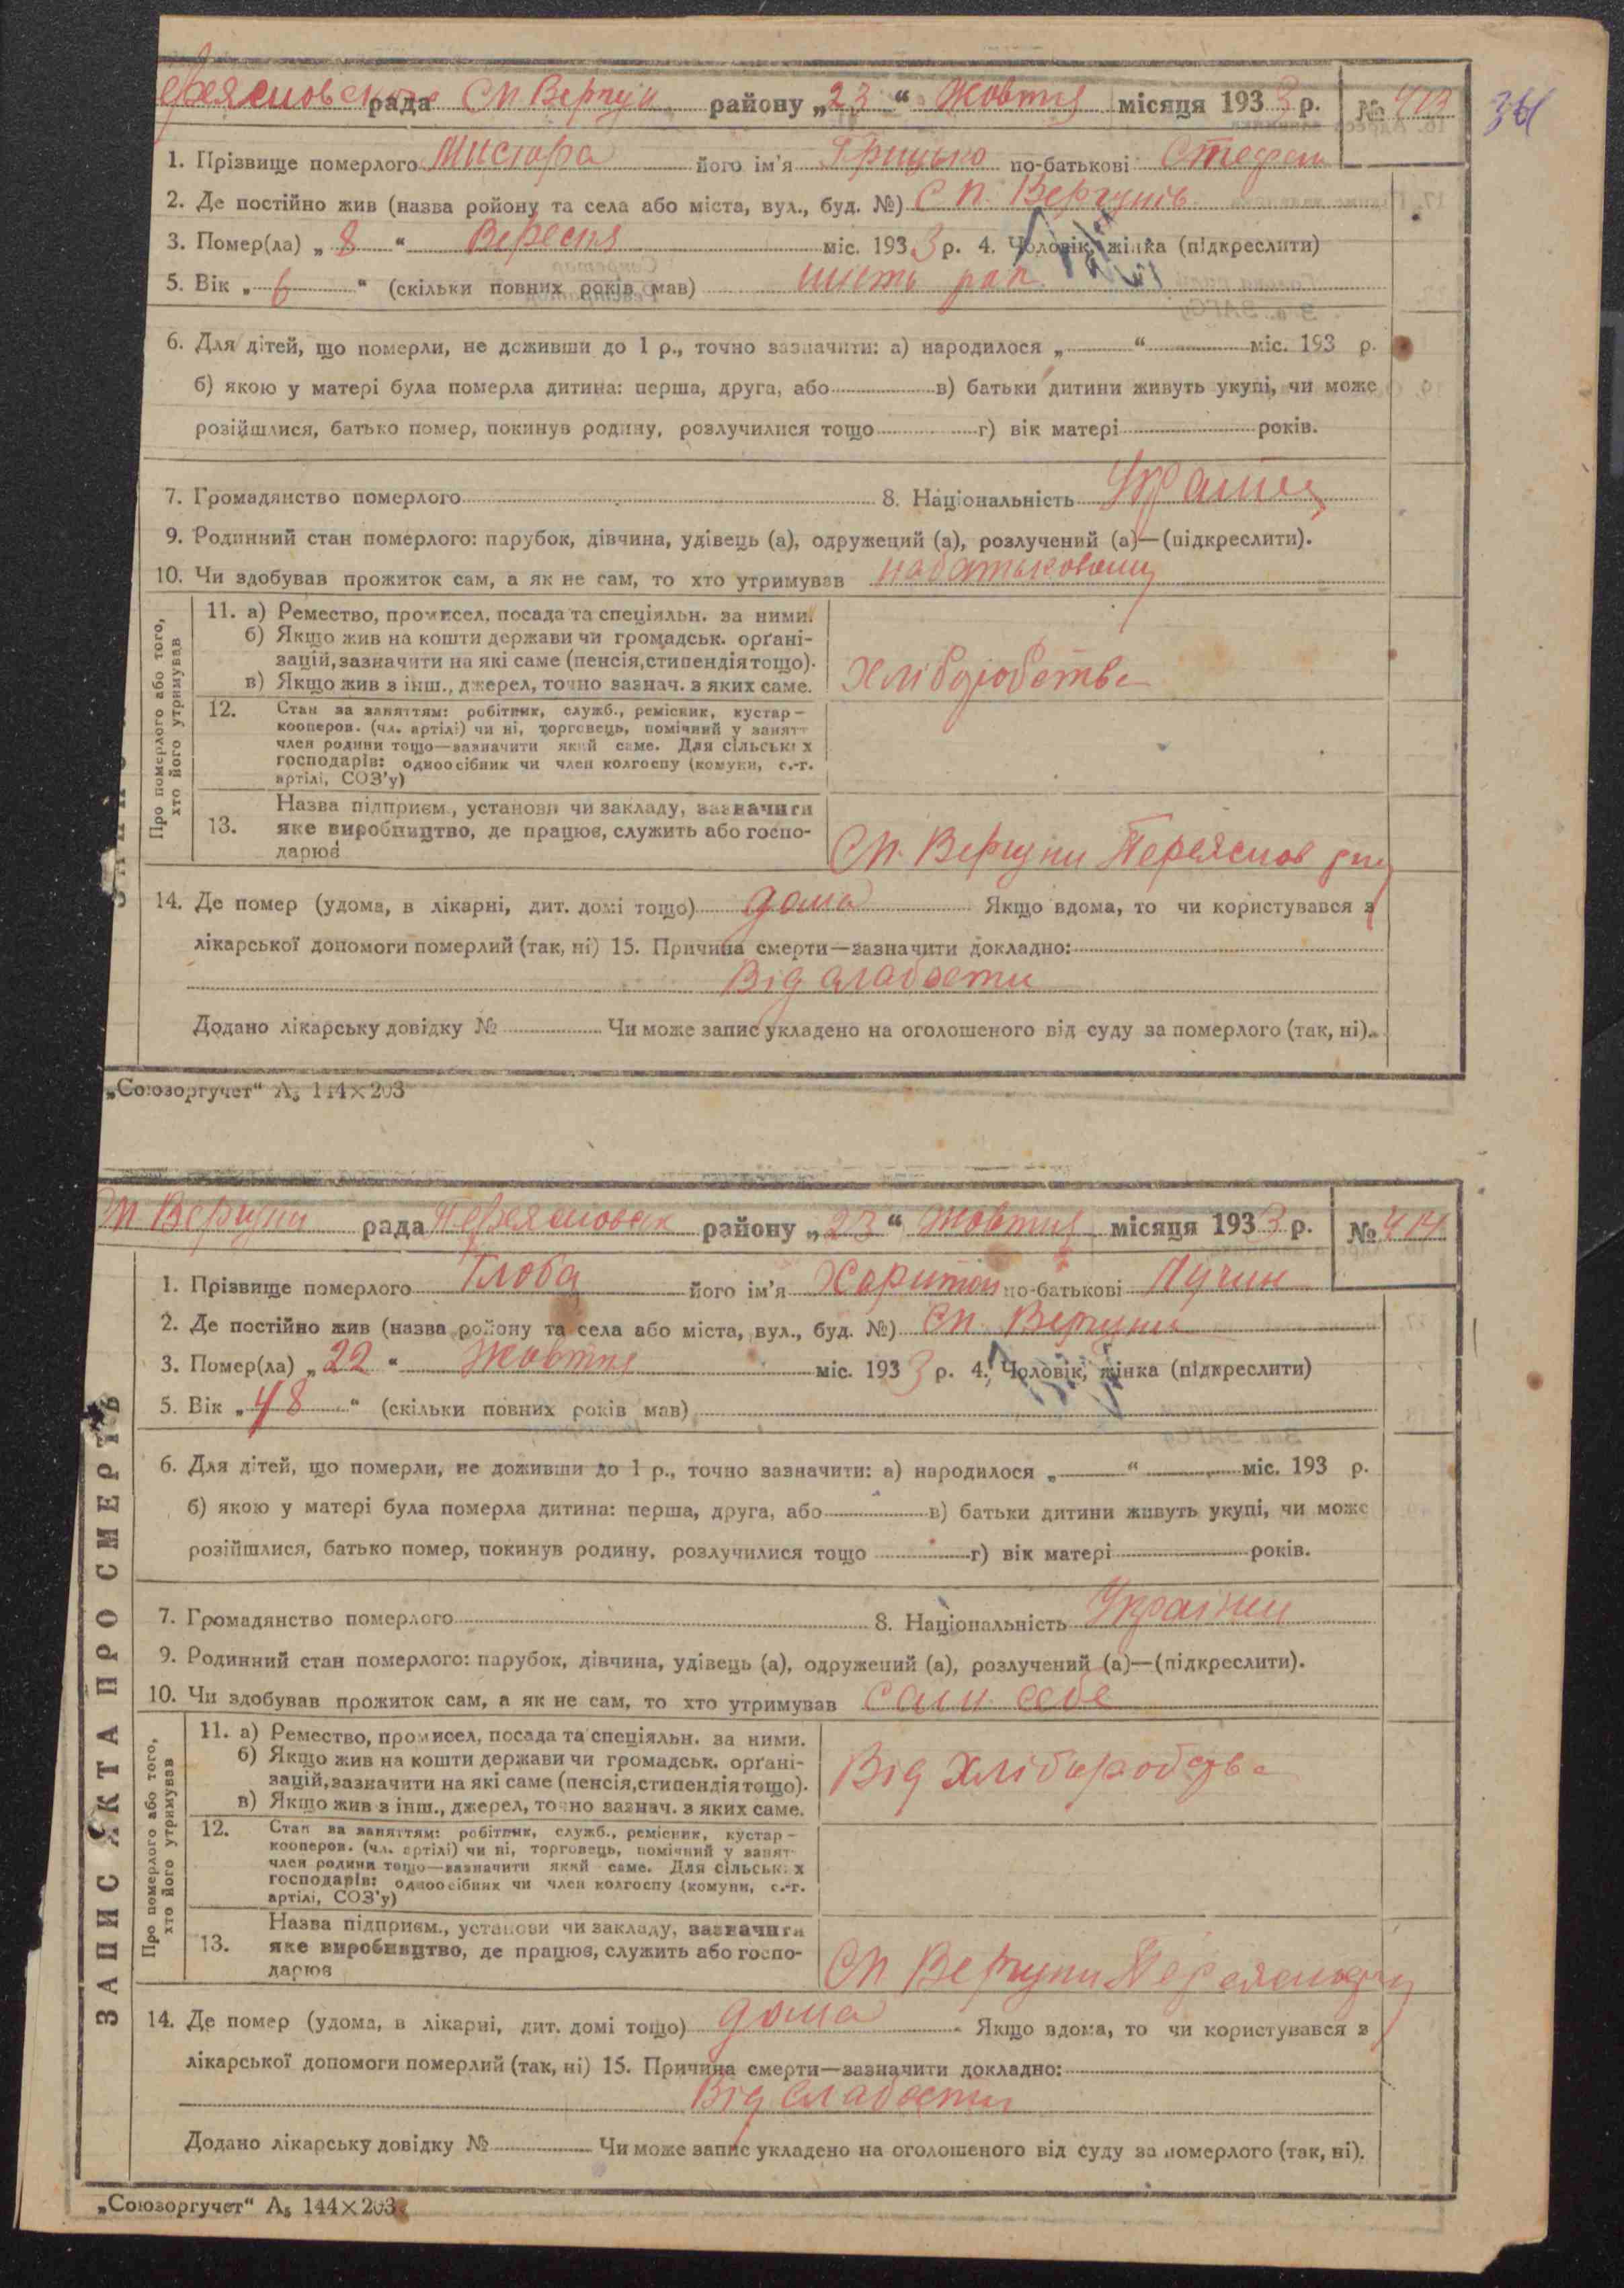 рада Сп. Вергун району „23“ Жовтня місяця 1933 р. № 413
361
1. Прізвище померлого його ім'я Грицько по-батькові Стефан
2. Де постійно жив (назва ройону та села або міста, вул., буд. №) с п. Вергунів
3. Помер(ла) „8“ Вересня міс. 1933 р. 4. Чоловік, жінка (підкреслити)
5. Вік „6“ (скільки повних років мав) шість рок
6. Для дітей, що померли, не доживши до 1 р., точно зазначити: а) народилося „ “ міс. 193 р.
б) якою у матері була померла дитина: перша, друга, або в) батьки дитини живуть укупі, чи може
розійшлися, батько помер, покинув родину, розлучилися тощо г) вік матері років.
7. Громадянство померлого 8. Національність
9. Родинний стан померлого: парубок, дівчина, удівець (а), одружений (а), розлучений (а)—(підкреслити).
10. Чи здобував прожиток сам, а як не сам, то хто утримував
Про померлого або того, хто його утримував
11. а) Ремество, промисел, посада та спеціяльн. за ними.
б) Якщо жив на кошти держави чи громадськ. орґані-
зацій, зазначити на які саме (пенсія, стипендія тощо).
в) Якщо жив з інш., джерел, точно зазнач. з яких саме.
12. Стан за заняттям: робітник, служб., ремісник, кустар—
кооперов. (чл. артілі) чи ні, торговець, помічний у занят
член родини тощо—зазначити який саме. Для сільських
господарів: одноосібник чи член колгоспу (комуни, с.-г.
артілі, СОЗ'у)
Назва підприєм., установи чи закладу, зазначити
13. яке виробництво, де працює, служить або госпо-
дарює
Сп. Вергуни
14. Де помер (удома, в лікарні, дит. домі тощо) дома Якщо вдома, то чи користувався з
лікарської допомоги померлий (так, ні) 15. Причина смерти—зазначити докладно:
Від слабости
Додано лікарську довідку № Чи може запис укладено на оголошеного від суду за померлого (так, ні).
„Союзоргучет“ А₅ 144×203
Сп Вергуни рада району „23“ Жовтня місяця 1933 р. № 414
1. Прізвище померлого Глоба його ім'я Харитон по-батькові
2. Де постійно жив (назва ройону та села або міста, вул., буд. №) Сп. Вергуни
3. Помер(ла) „22“ Жовтня міс. 1933 р. 4. Чоловік, жінка (підкреслити)
5. Вік „48“ (скільки повних років мав)
6. Для дітей, що померли, не доживши до 1 р., точно зазначити: а) народилося „ “ міс. 193 р.
б) якою у матері була померла дитина: перша, друга, або в) батьки дитини живуть укупі, чи може
розійшлися, батько помер, покинув родину, розлучилися тощо г) вік матері років.
7. Громадянство померлого 8. Національність
9. Родинний стан померлого: парубок, дівчина, удівець (а), одружений (а), розлучений (а)—(підкреслити).
10. Чи здобував прожиток сам, а як не сам, то хто утримував сам себе
ЗАПИС АКТА ПРО СМЕРТЬ
Про померлого або того, хто його утримував
11. а) Ремество, промисел, посада та спеціяльн. за ними.
б) Якщо жив на кошти держави чи громадськ. орґані-
зацій, зазначити на які саме (пенсія, стипендія тощо).
в) Якщо жив з інш., джерел, точно зазнач. з яких саме.
Від
12. Стан за заняттям: робітник, служб., ремісник, кустар—
кооперов. (чл. артілі) чи ні, торговець, помічний у занят
член родини тощо—зазначити який саме. Для сільських
господарів: одноосібник чи член колгоспу (комуни, с.-г.
артілі, СОЗ'у)
Назва підприєм., установи чи закладу, зазначити
13. яке виробництво, де працює, служить або госпо-
дарює
Сп Вергуни
14. Де помер (удома, в лікарні, дит. домі тощо) дома Якщо вдома, то чи користувався з
лікарської допомоги померлий (так, ні) 15. Причина смерти—зазначити докладно:
Від слабости
Додано лікарську довідку № Чи може запис укладено на оголошеного від суду за померлого (так, ні).
„Союзоргучет“ А₅ 144×203